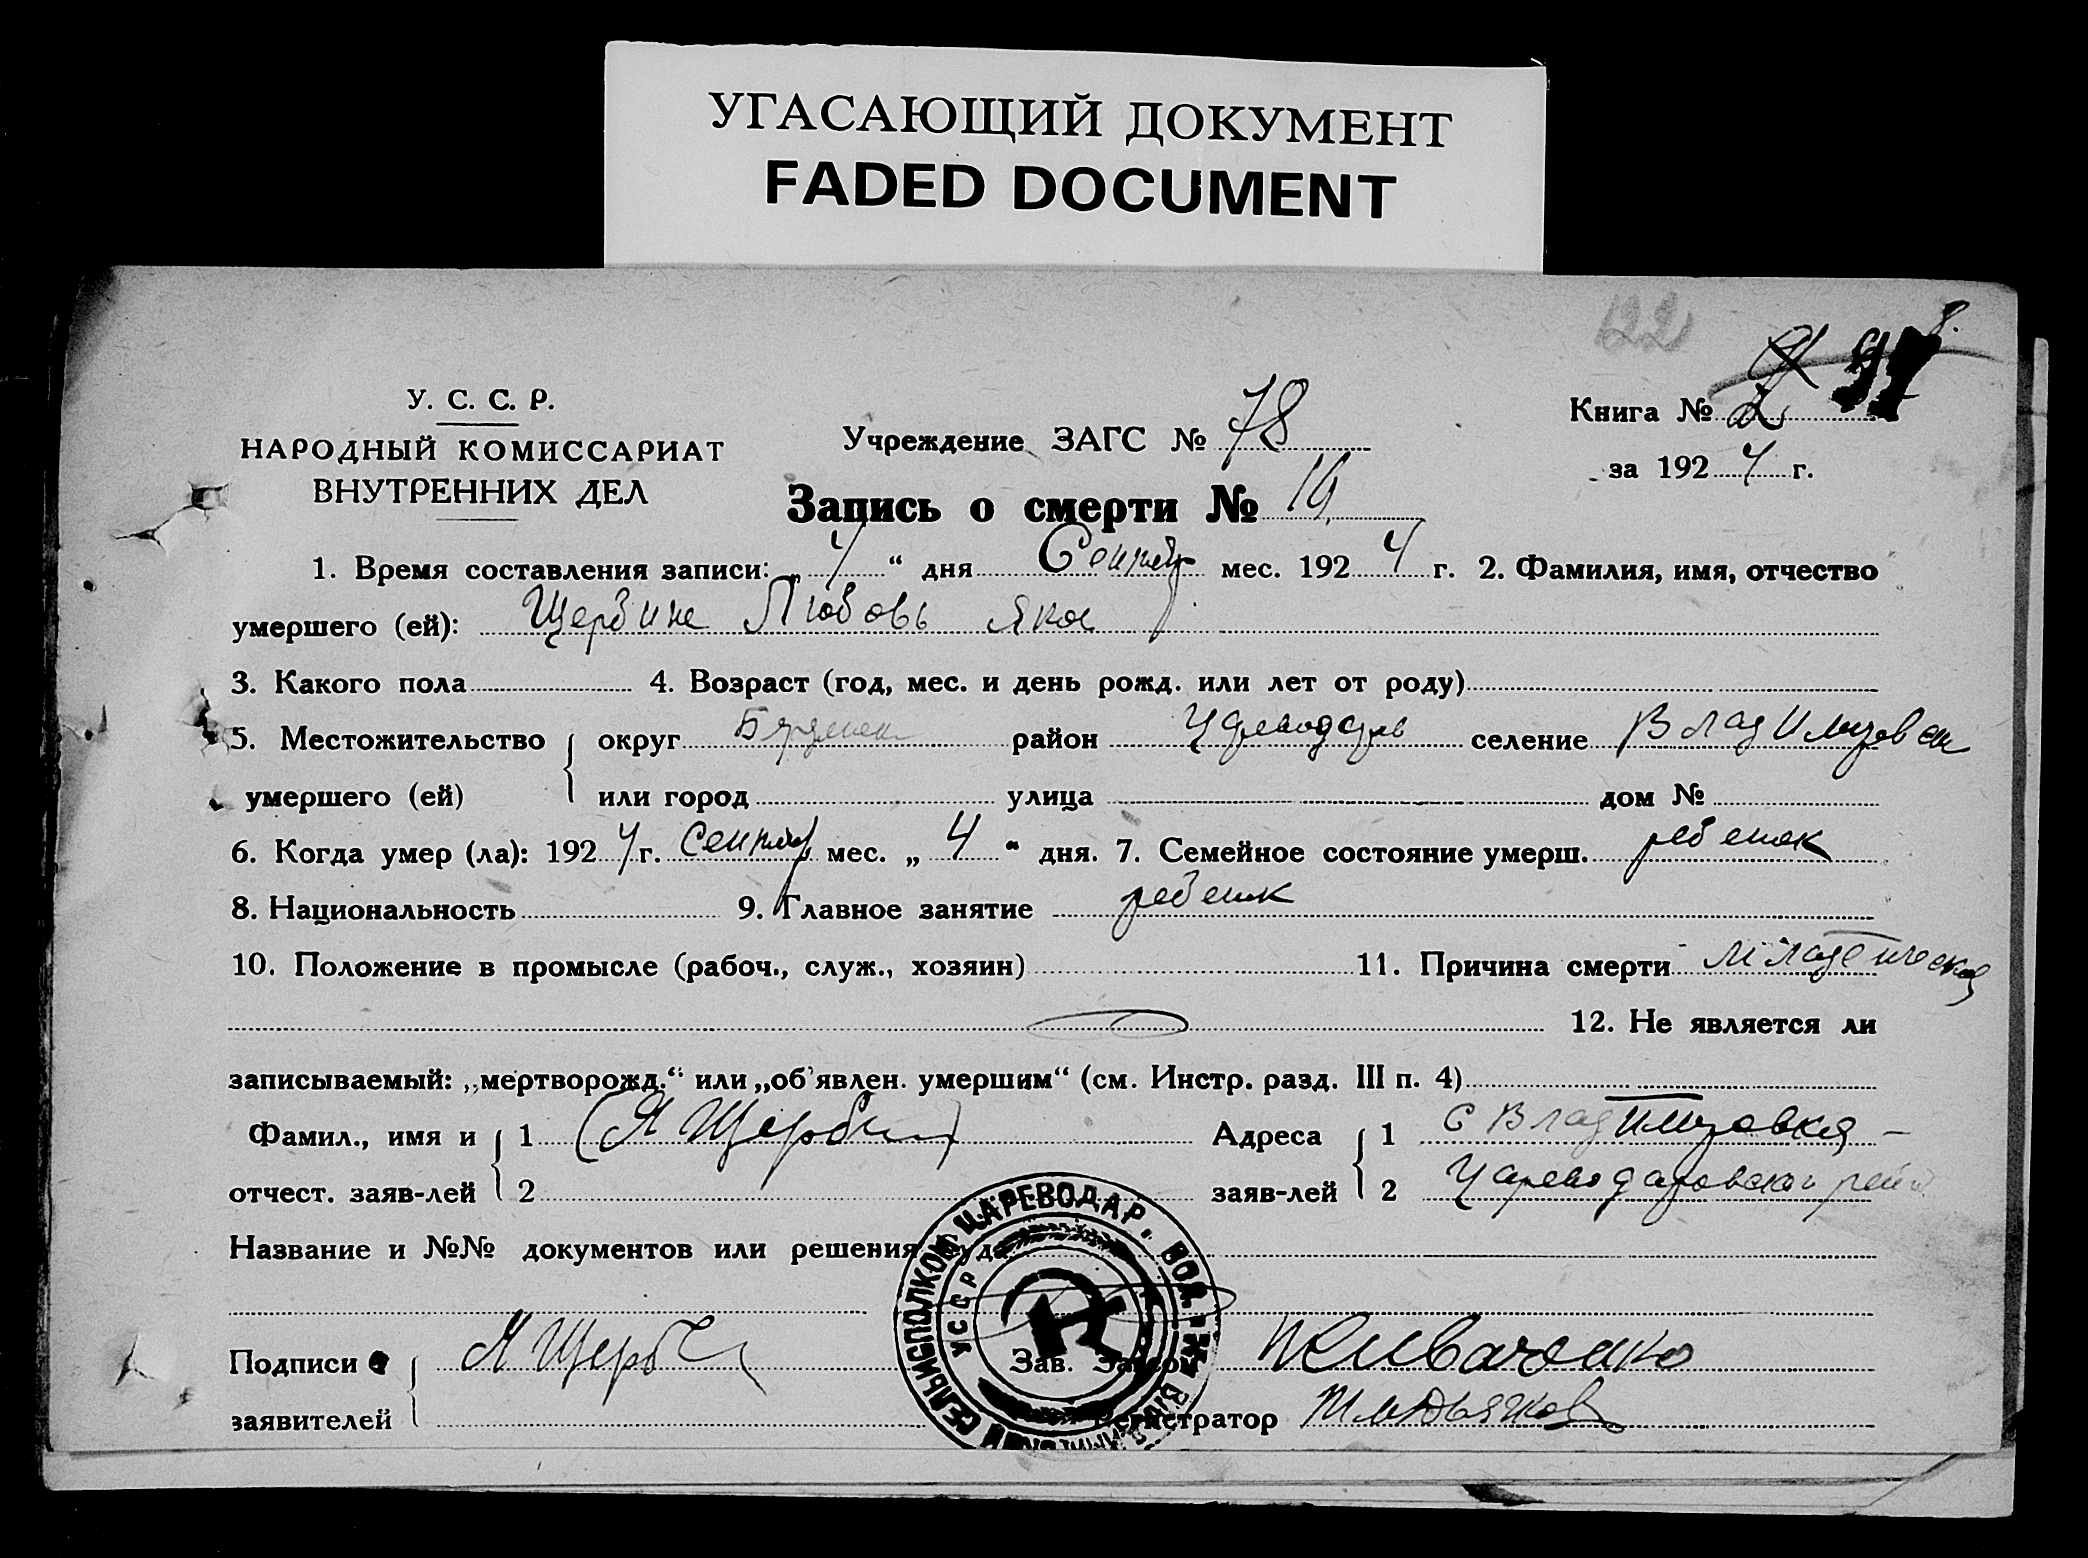 УГАСАЮЩИЙ ДОКУМЕНТ
FADED DOCUMENT
122
У. С. С. Р.
НАРОДНЫЙ КОМИССАРИАТ
ВНУТРЕННИХ ДЕЛ
Учреждение ЗАГС № 78
Книга № 2
за 1924 г.
Запись о смерти № 19
1. Время составления записи: „4“ дня мес. 1924 г. 2. Фамилия, имя, отчество
умершего (ей): Щербина Любовь Яков
3. Какого пола 4. Возраст (год, мес. и день рожд. или лет от роду)
5. Местожительство округ район Цареводар селение Владимировка
умершего (ей) или город улица дом №
6. Когда умер (ла): 1924 г. мес. „4“ дня. 7. Семейное состояние умерш. ребенок
8. Национальность 9. Главное занятие ребенок
10. Положение в промысле (рабоч., служ., хозяин) 11. Причина смерти
12. Не является ли
записываемый: „мертворожд.“ или „об'явлен. умершим“ (см. Инстр. разд. III п. 4)
Фамил., имя и 1 (Я Щербина) Адреса 1 с Владимировка –
отчест. заяв-лей 2 заяв-лей 2 Цареводаровского
Название и №№ документов или решения суда
СЕЛЬИСПОЛКОМ ЦАРЕВОДАР. ВОЛ.
УССР
Подписи Я Щерби Зав. Загсом
заявителей Регистратор